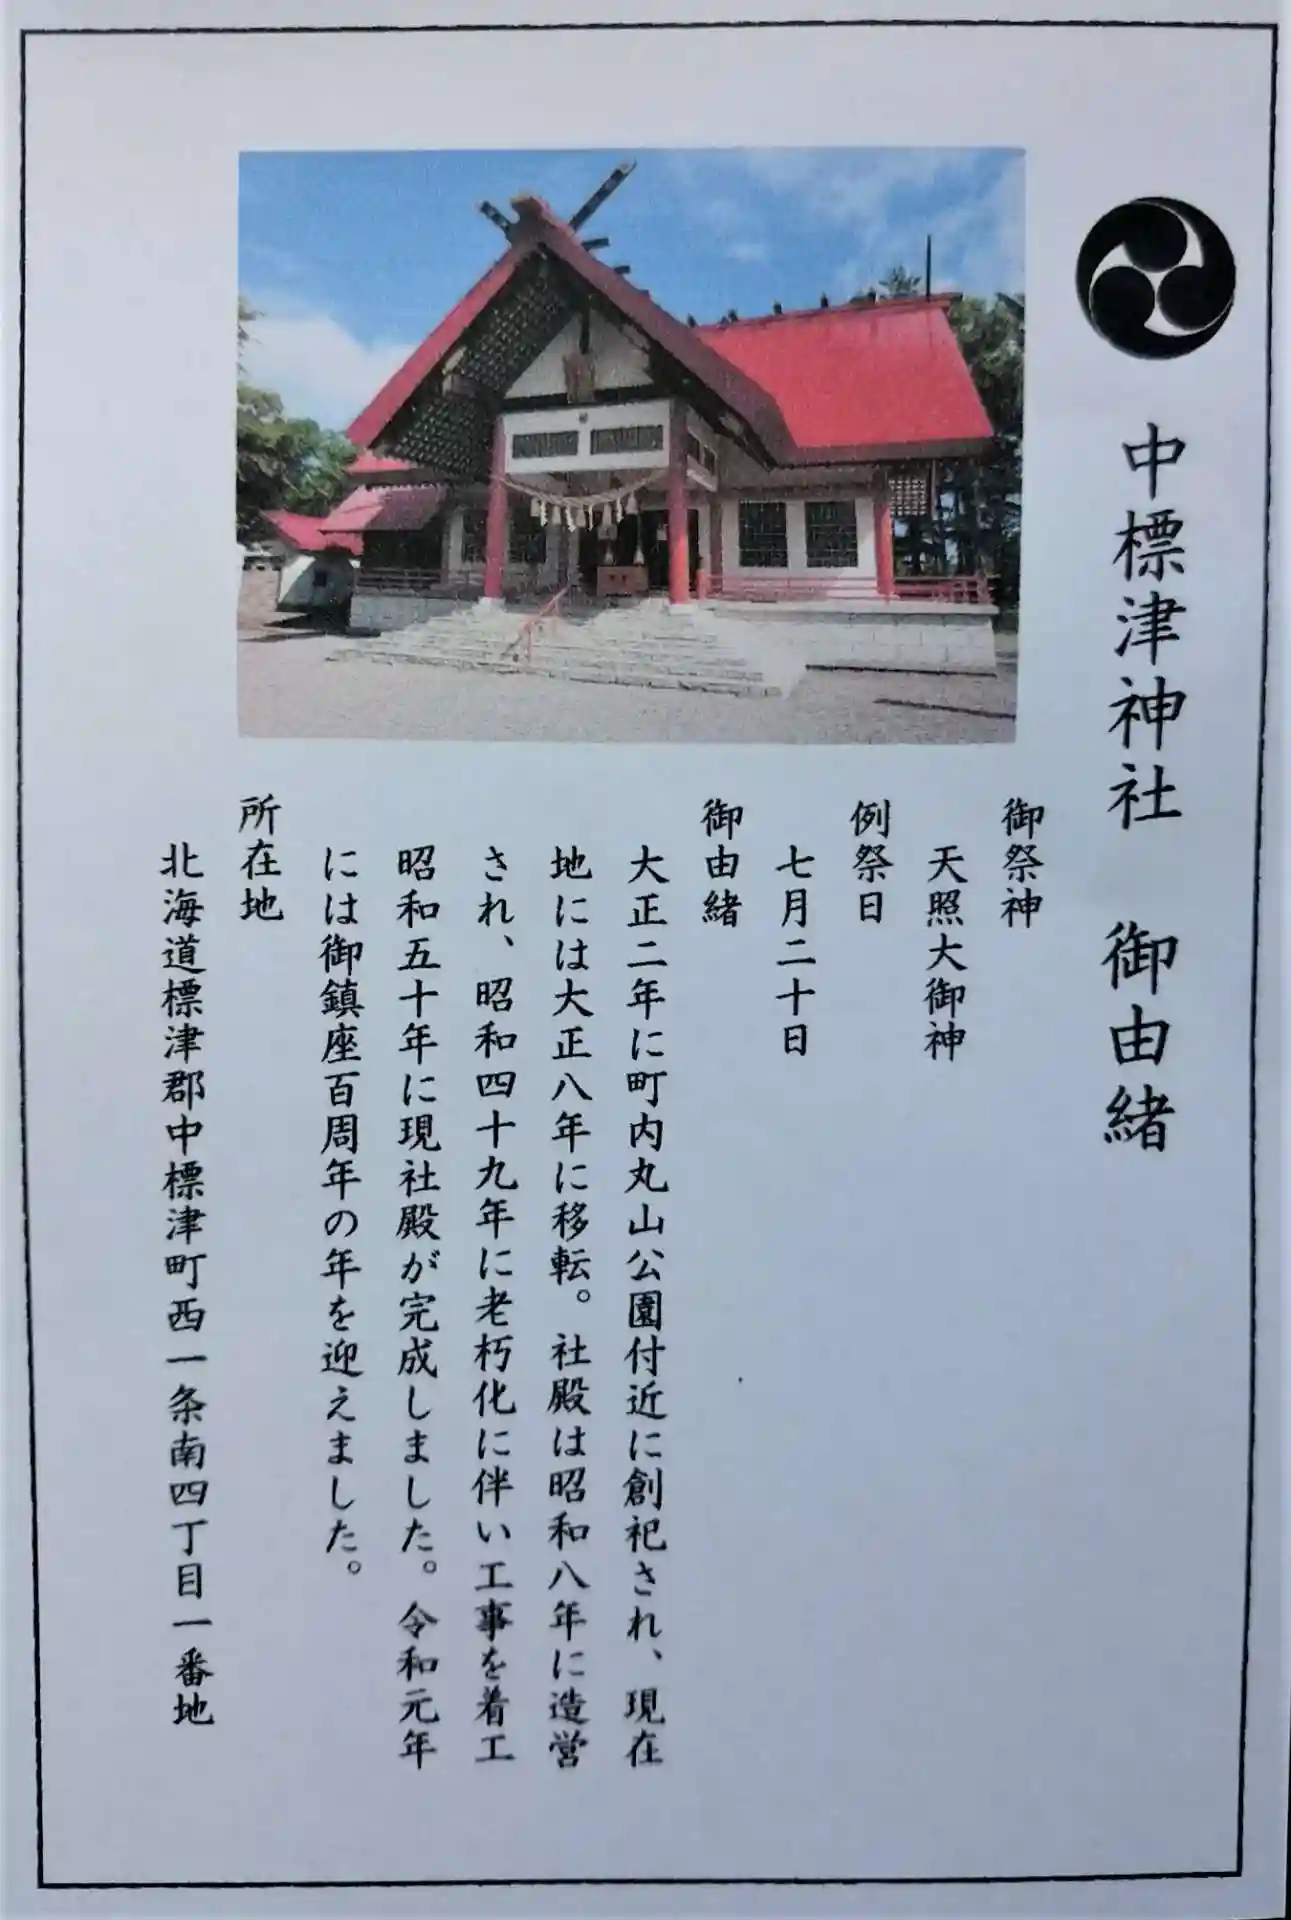 中標津神社　御由緒
御祭神
天照大御神
例祭日
七月二十日
御由緒
大正二年に町内丸山公園付近に創祀され、現在
地には大正八年に移転。社殿は昭和八年に造営
され、昭和四十九年に老朽化に伴い工事を着工
昭和五十年に現社殿が完成しました。令和元年
には御鎮座百周年の年を迎えました。
所在地
北海道標津郡中標津町西一条南四丁目一番地